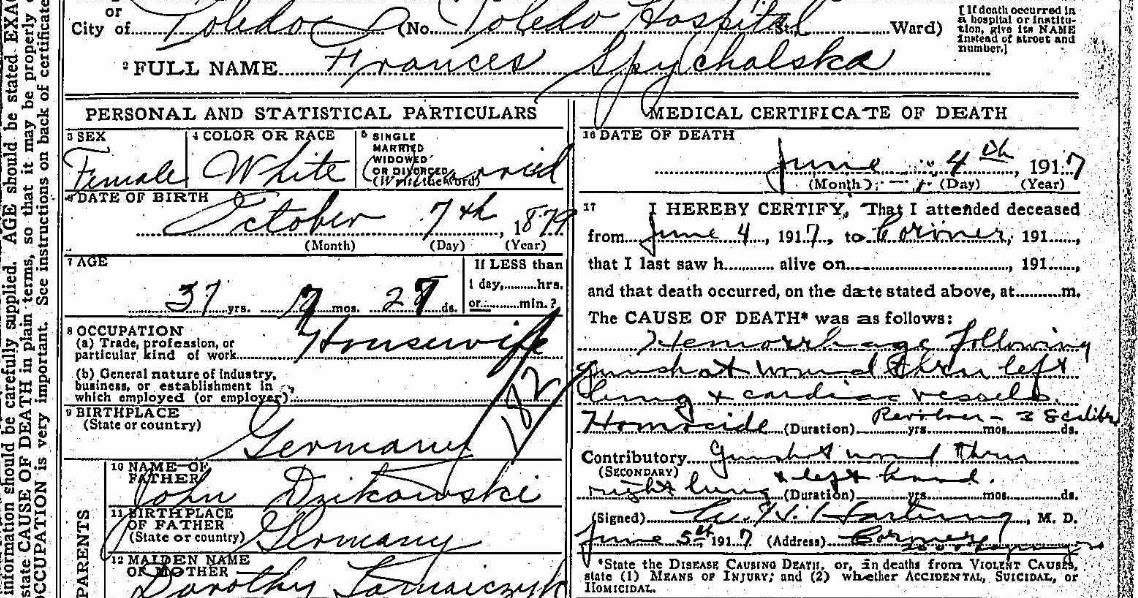 or
City of Toledo (No. Toledo Hospital St. Ward)
[If death occurred in a hospital or institution, give its NAME instead of street and number.]
2 FULL NAME Frances Spychalska
PERSONAL AND STATISTICAL PARTICULARS
3 SEX
Female
4 COLOR OR RACE
White
5 SINGLE
MARRIED
WIDOWED
OR DIVORCED
(Write the word)
Married
6 DATE OF BIRTH
October 7th, 1879
(Month) (Day) (Year)
7 AGE
37 yrs. 7 mos. 28 ds.
If LESS than
1 day, hrs.
or min.?
8 OCCUPATION
(a) Trade, profession, or
particular kind of work Housewife
(b) General nature of industry,
business, or establishment in
which employed (or employer)
182
9 BIRTHPLACE
(State or country)
Germany
PARENTS
10 NAME OF
FATHER
John Dzikowski
11 BIRTHPLACE
OF FATHER
(State or country) Germany
12 MAIDEN NAME
OF MOTHER
Dorothy
MEDICAL CERTIFICATE OF DEATH
16 DATE OF DEATH
June 4th, 1917
(Month) (Day) (Year)
17 I HEREBY CERTIFY, That I attended deceased
from June 4, 1917, to Coroner, 191
that I last saw h alive on , 191
and that death occurred, on the date stated above, at m.
The CAUSE OF DEATH* was as follows:
Hemorrhage following
gunshot wound thru left
lung & cardiac vessels.
Homicide (Duration) yrs. mos. ds.
Revolver - 38 calibre
Contributory Gunshot wound thru
(SECONDARY)
right lung & left hand.
(Duration) yrs. mos. ds.
(Signed) Hartung, M. D.
June 5th 1917 (Address) Coroner
*State the DISEASE CAUSING DEATH, or, in deaths from VIOLENT CAUSES,
state (1) MEANS OF INJURY; and (2) whether ACCIDENTAL, SUICIDAL, or
HOMICIDAL.
information should be carefully supplied. AGE should be stated EXAC
state CAUSE OF DEATH in plain terms, so that it may be properly
OCCUPATION is very important. See instructions on back of certificate